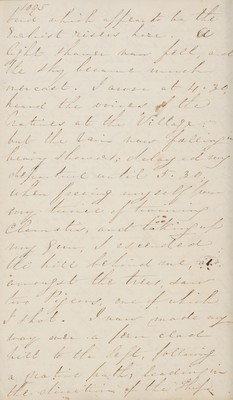 1095
bird which appears to be the
Earliest risers here. A
light shower now fell, and
the sky became much
overcast. I arose at 4.30,
heard the voices of the
natives at the Village,
but the rain now falling in
heavy showers, delayed my
departure until 5.30,
when
my
and taking up
my gun, I ascended
the hill behind me, &
amongst the trees, saw
two Pigeons, one of which
I shot. I now made my
way over a fern clad
hill to the left, following
a native path, leading in
the direction of the